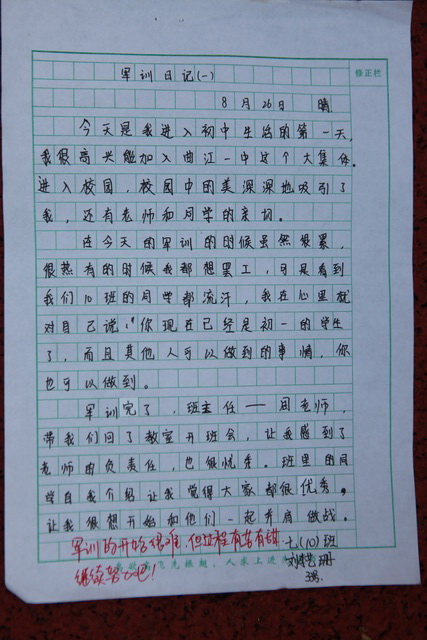 修正栏
军训日记(一)
8月26日 晴
今天是我进入初中生活的第一天,
我很高兴能加入曲江一中这个大集体。
进入校园,校园中的美深深地吸引了
我,还有老师和同学的亲切。
在今天的军训的时候虽然很累,
很热有的时候我都想罢工,可是看到
我们10班的同学都流汗,我在心里就
对自己说:“你现在已经是初一的学生
了,而且其他人可以做到的事情,你
也可以做到。
军训完了,班主任——周老师,
带我们回了教室开班会,让我感到了
老师的负责任,也很优秀。班里的同
学自我介绍让我觉得大家都很优秀。
让我很想开始和他们一起并肩做战。
军训的开始很难,但过程有苦有甜
七(10)班
继续努力吧!
人求上进